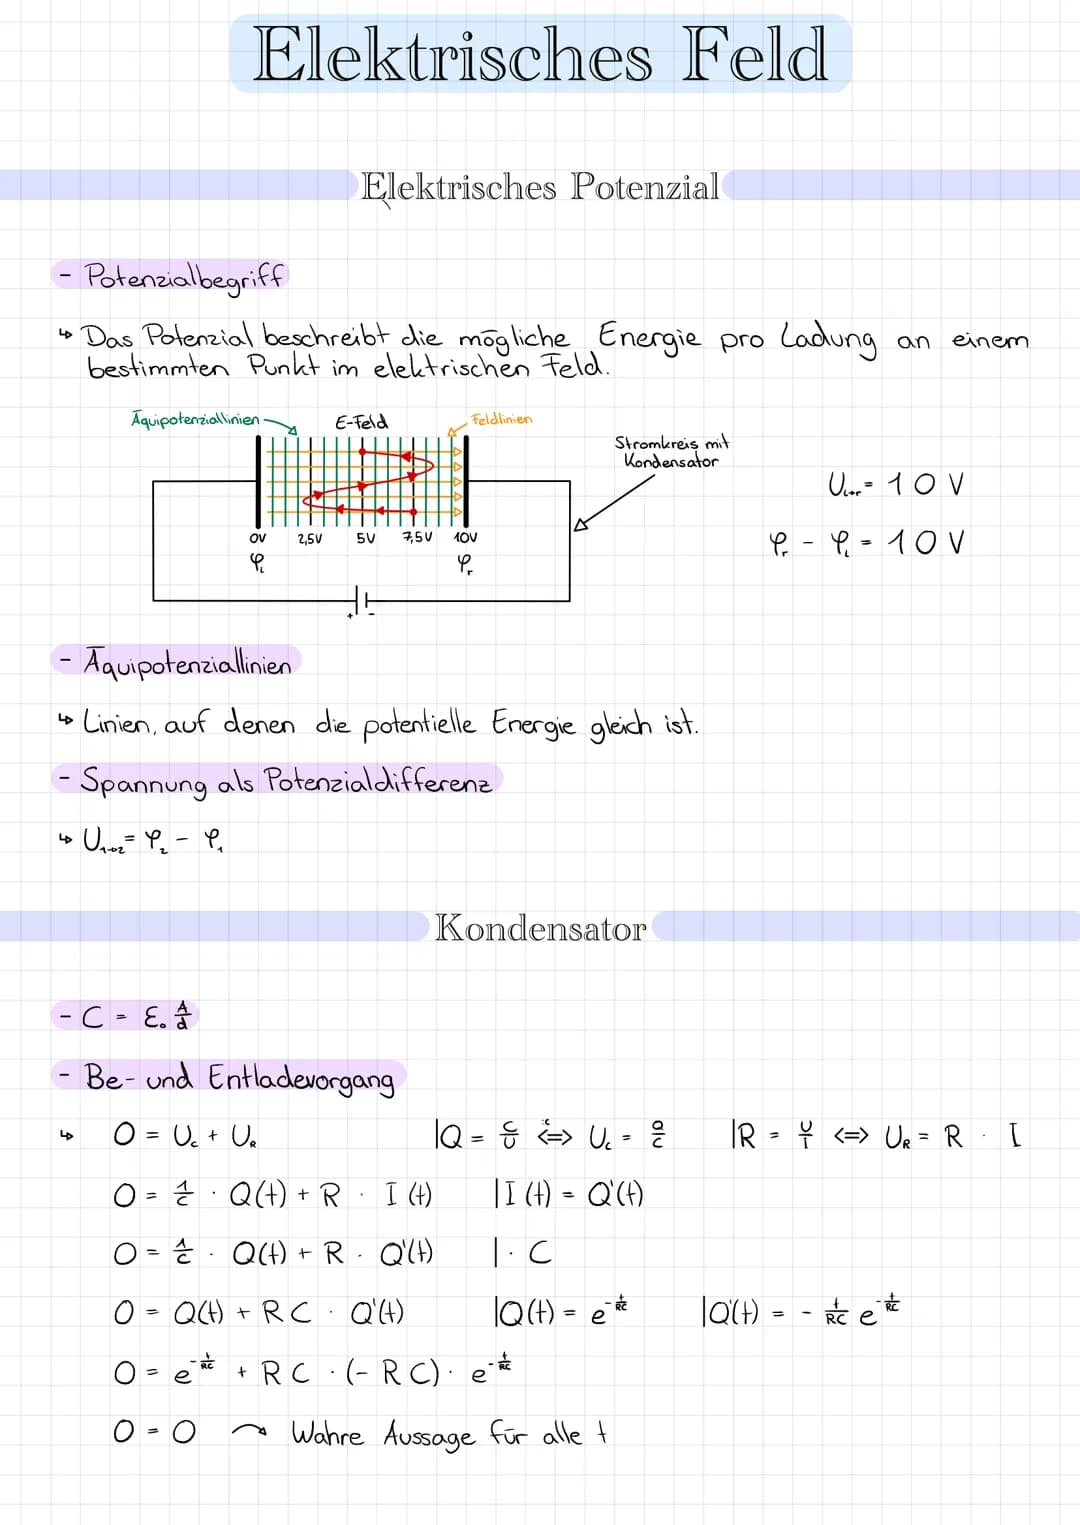 Elektrisches Feld
Elektrisches Potenzial
- Potenzialbegriff
↳ Das Potenzial beschreibt die mögliche Energie pro Ladung an einem
bestimmten Punkt im elektrischen Feld.
Äquipotenziallinien
E-Feld
Feldlinien
Stromkreis mit
Kondensator
0V 2,5V 5V 7,5V 10V
φₗ φᵣ
+ -
Uₗ→ᵣ = 10 V
φᵣ - φₗ = 10 V
- Äquipotenziallinien
↳ Linien, auf denen die potentielle Energie gleich ist.
- Spannung als Potenzialdifferenz
↳ U₁→₂ = φ₂ - φ₁
Kondensator
- C = ε₀ A/d
- Be- und Entladevorgang
↳ 0 = U_C + U_R |Q = C/U <=> U_C = Q/C |R = U/I <=> U_R = R · I
0 = 1/C · Q(t) + R · I(t) |I(t) = Q'(t)
0 = 1/C · Q(t) + R · Q'(t) | · C
0 = Q(t) + RC · Q'(t) |Q(t) = e^(-t/RC) |Q'(t) = - 1/RC e^(-t/RC)
0 = e^(-t/RC) + RC · (-RC) · e^(-t/RC)
0 = 0 ↷ Wahre Aussage für alle t